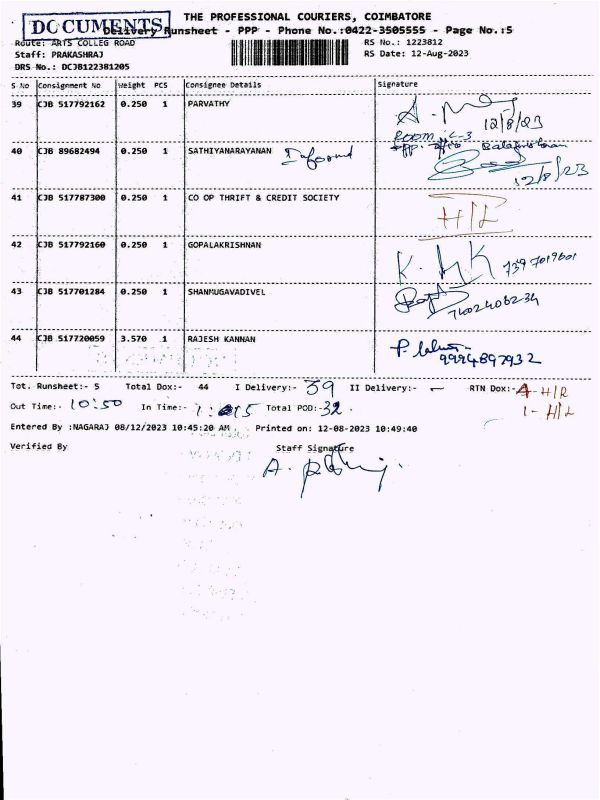 THE PROFESSIONAL COURIERS, COIMBATORE
DOCUMENTS
Delivery Runsheet - PPP - Phone No.:0422-3505555 - Page No.:5
Route: ARTS COLLEG ROAD
RS No.: 1223812
Staff: PRAKASHRAJ
RS Date: 12-Aug-2023
DRS No.: DCJB122381205
S No Consignment No Weight PCS Consignee Details Signature
39 CJB 517792162 0.250 1 PARVATHY
12/8/23
40 CJB 89682494 0.250 1 SATHIYANARAYANAN
12/8/23
41 CJB 517787300 0.250 1 CO OP THRIFT & CREDIT SOCIETY H/L
42 CJB 517792160 0.250 1 GOPALAKRISHNAN
7397019601
43 CJB 517701284 0.250 1 SHANMUGAVADIVEL
7402406234
44 CJB 517720059 3.570 1 RAJESH KANNAN
9994897932
Tot. Runsheet:- 5 Total Dox:- 44 I Delivery:- 39 II Delivery:- - RTN Dox:- 4-H/R
1-H/L
Out Time:- 10:50 In Time:- Total POD:- 32.
Entered By :NAGARAJ 08/12/2023 10:45:20 AM Printed on: 12-08-2023 10:49:40
Verified By Staff Signature